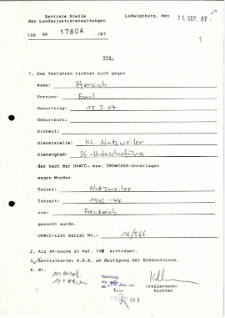 Zentrale Stelle
der Landesjustizverwaltungen
Ludwigsburg, den 11. SEP. 87
108 AR 17804 /87
1
Vfg.
1. Das Verfahren richtet sich gegen
Name: Pfersich
Vorname: Emil
Geburtstag: 15.3.07
Geburtsort:
Einheit:
Dienststelle: KL Natzweiler
Dienstgrad: SS-Unterscharführer
der nach der UNWCC- bzw. CROWCASS-Unterlagen
wegen Mordes
Tatort: Natzweiler
Tatzeit: 1942-44
von: Frankreich
gesucht wurde.
UNWCC-List Serial No.: 16/566
2. Als AR-Sache in Ref. 108 eintragen.
3. Zentralkartei m.d.B. um Beifügung der Erkenntnisse.
4. Wv.
(Kellermann)
Richter